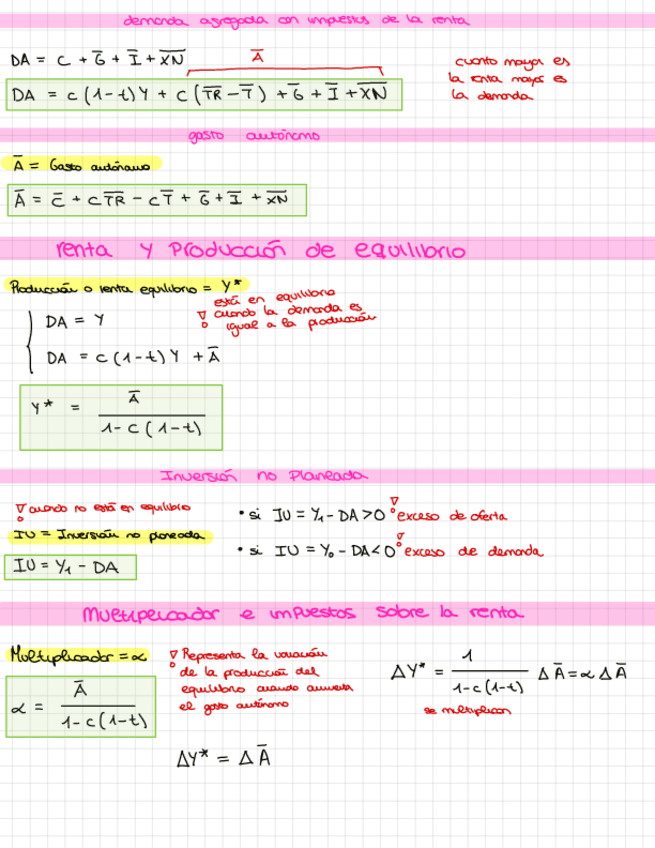 demanda agregada con impuestos de la renta
DA = C + G̅ + I̅ + X̅N̅
A̅
DA = c(1-t)Y + c(T̅R̅ - T̅) + G̅ + I̅ + X̅N̅
cuanto mayor es
la renta mayor es
la demanda
gasto autónomo
A̅ = Gasto autónomo
A̅ = C̅ + cT̅R̅ - cT̅ + G̅ + I̅ + X̅N̅
renta y Producción de equilibrio
Producción o renta equilibrio = Y*
está en equilibrio
cuando la demanda es
igual a la producción
DA = Y
DA = c(1-t)Y + A̅
Y* = A̅ / 1-c(1-t)
Inversión no Planeada
cuando no está en equilibrio
IU = Inversión no planeada
IU = Y₁ - DA
• si IU = Y₁ - DA > 0 exceso de oferta
• si IU = Y₀ - DA < 0 exceso de demanda
Multiplicador e impuestos sobre la renta
Multiplicador = α
α = A̅ / 1-c(1-t)
Representa la variación
de la producción del
equilibrio cuando aumenta
el gasto autónomo
ΔY* = ΔA̅
ΔY* = 1 / 1-c(1-t) ΔA̅ = α ΔA̅
se multiplican